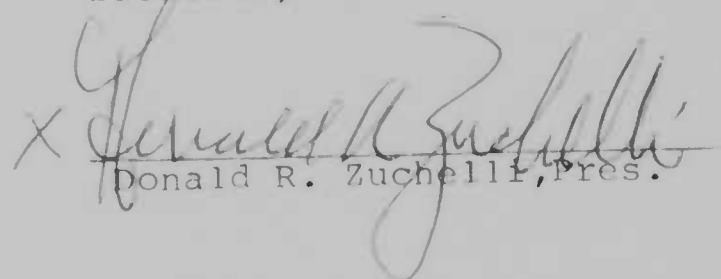 X Donald R Zuchelli
Donald R. Zuchelli, Pres.